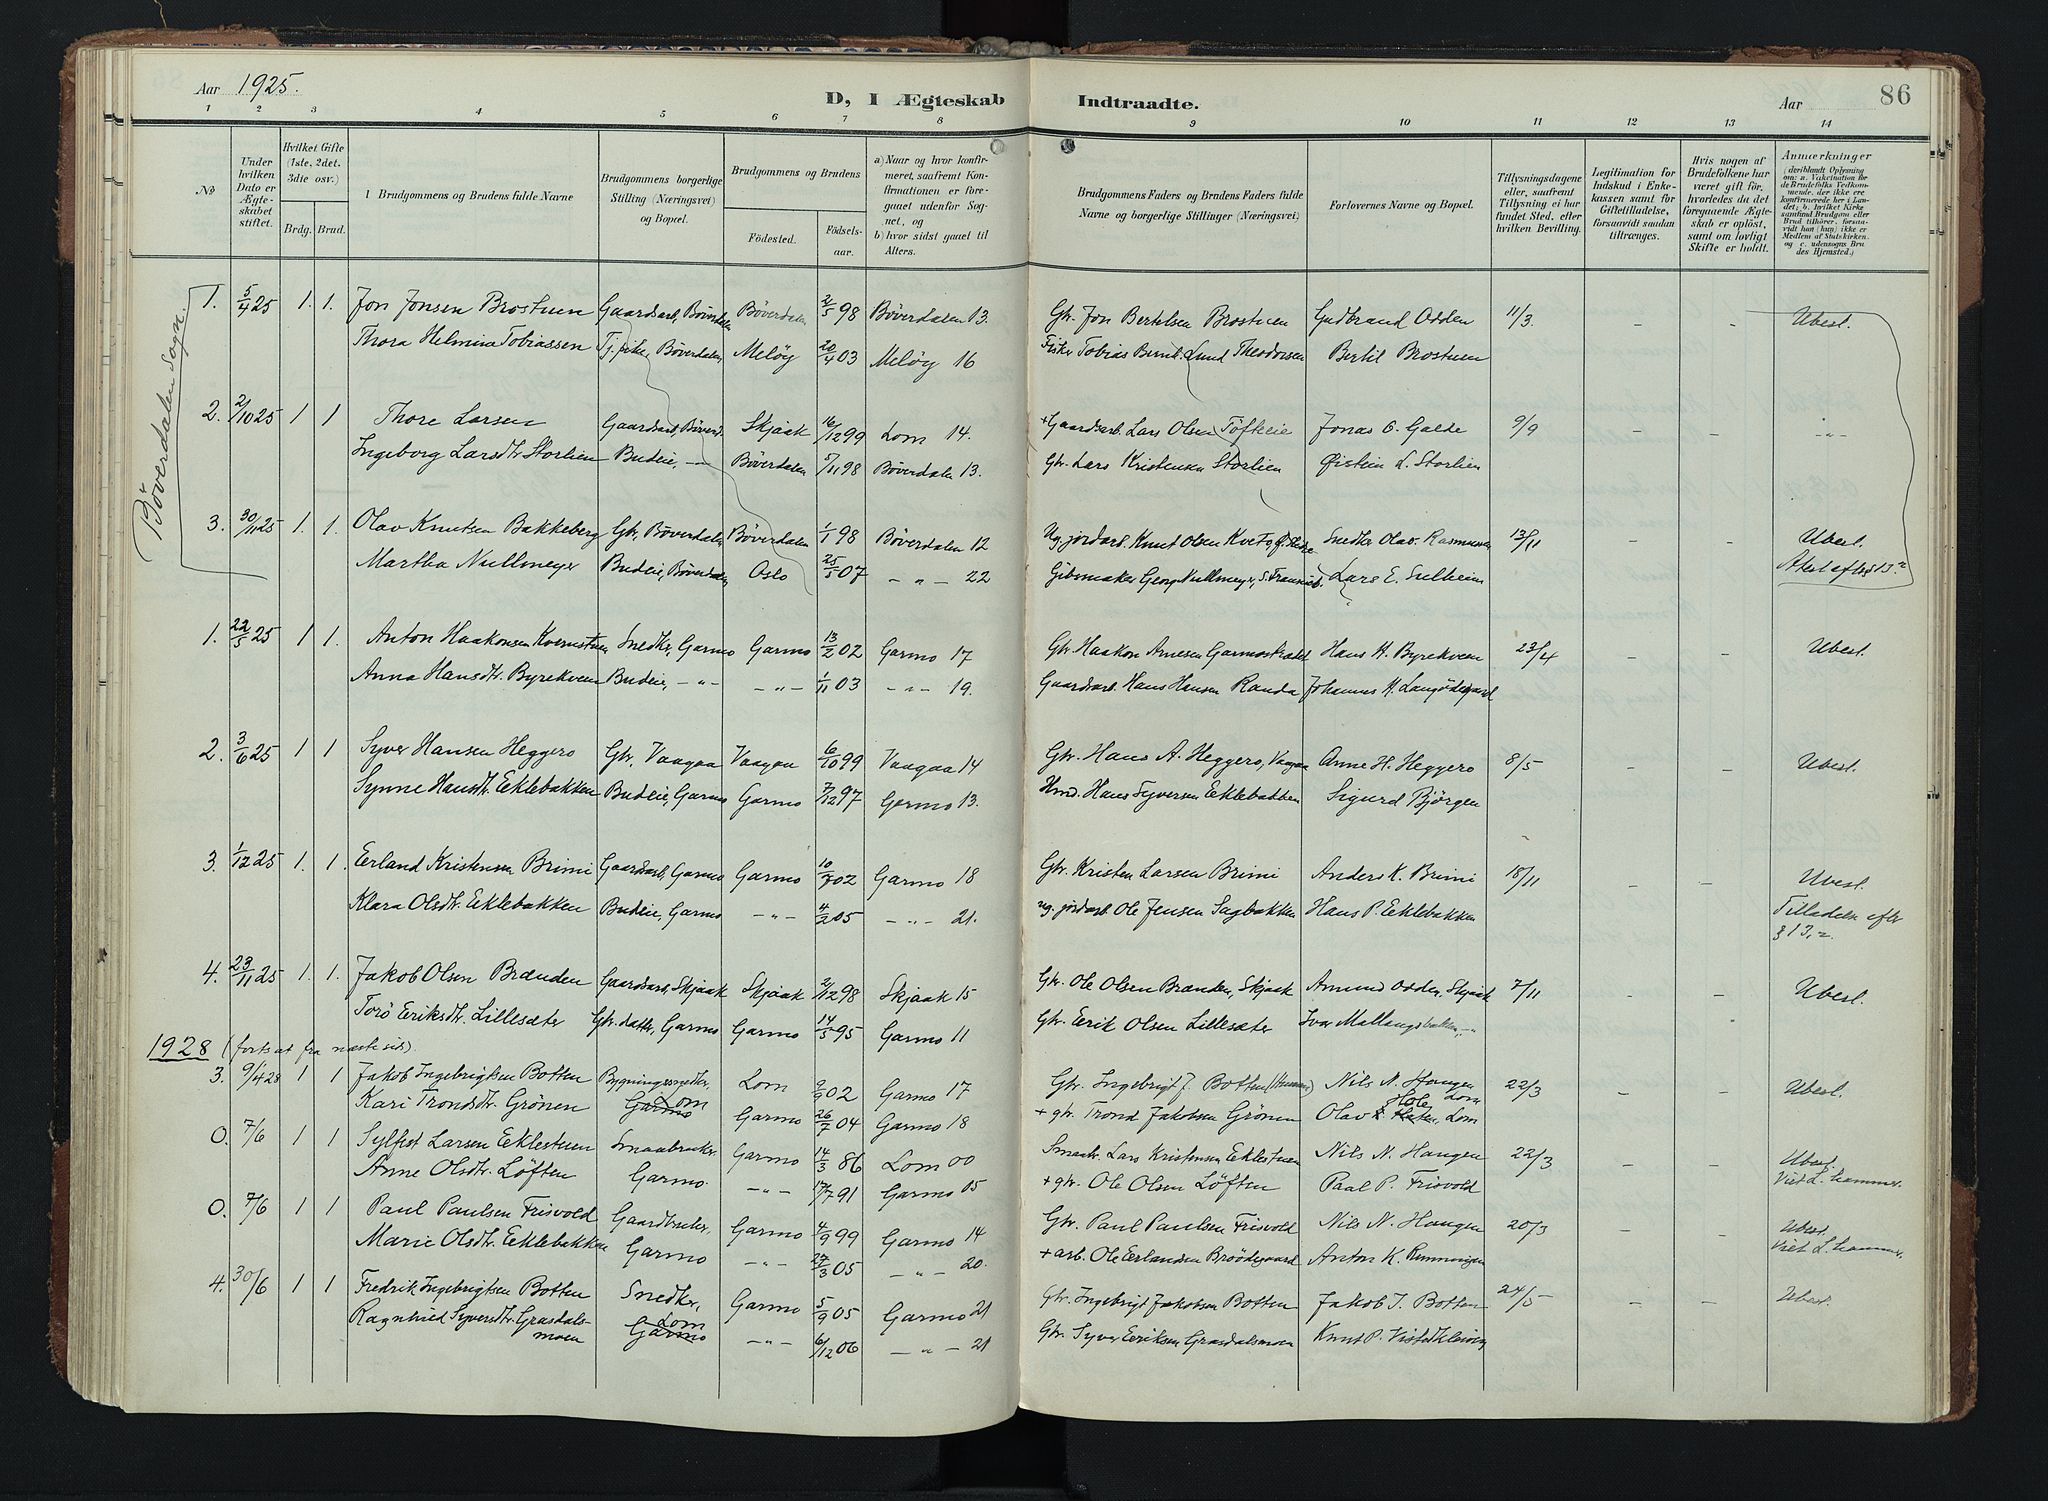 Aar 1925.
D, I Ægteskab Indtraadte.
Aar 86
1 2 3 4 5 6 7 8 9 10 11 12 13 14
No
Under hvilken Dato er Ægteskabet stiftet.
Hvilket Gifte (1ste, 2det, 3die osv.)
Brdg. Brud.
1 Brudgommens og Brudens fulde Navne
Brudgommens borgerlige Stilling (Næringsvei) og Bopæl.
Brudgommens og Brudens
Fødested. Fødselsaar.
a) Naar og hvor konfirmeret, saafremt Konfirmationen er foregaaet udenfor Sognet, og
b) hvor sidst gaaet til Alters.
Brudgommens Faders og Brudens Faders fulde Navne og borgerlige Stillinger (Næringsvei)
Forlovernes Navne og Bopæl.
Tillysningsdagene eller, saafremt Tillysning ei har fundet Sted, efter hvilken Bevilling.
Legitimation for Indskud i Enkekassen samt for Giftetilladelse, forsaavidt saadan tiltrænges.
Hvis nogen af Brudefolkene har været gift før, hvorledes da det foregaaende Ægteskab er opløst, samt om lovligt Skifte er holdt.
Anmærkninger (deriblandt Oplysning om: a. Vakcination for de Brudefolks Vedkommende, der ikke ere konfirmerede her i Landet; b. hvilket Kirkesamfund Brudgom eller Brud tilhører, forsaavidt han (hun) ikke er Medlem af Statskirken. og c. udensogns Brudes Hjemsted.)
Böverdalen sogn.
1. 5/4 25 1. 1. Jon Jonsen Brostuen Gaardsarb, Böverdalen Böverdalen 2/5 98 Böverdalen 13. Gbr. Jon Bertelsen Brostuen Gudbrand Odden 11/3. - - Ubesl.
Thora Helmina Tobiassen Tj. pike, Böverdalen, Melöy 20/4 03 Melöy 16 Fisker Tobias Bernt Lund Theodorsen Bertil Brostuen
2. 2/10 25 1 1 Thore Larsen Gaardsarb, Böverd. Skjaak 16/12 99 Lom 14. + Gaardsarb. Lars Olsen Töfteeie Jonas O. Galde 9/9 - - -"-
Ingeborg Larsdtr Storlien Budeie, -"- Böverdalen 5/11 98 Böverdalen 13. Gbr. Lars Kristensen Storlien Øistein L. Storlien
3. 30/11 25 1. 1. Olav Knutsen Bakkeberg Gbr, Böverdalen Böverdalen 1/1 98 Böverdalen 12 Ug. jordarb. Knut Olsen Snedker Olav Rasmussen 13/11 - - Ubesl.
Martha Nullmeyer Budeie, Böverdalen Oslo 25/5 07 -"- 22 Gibsmaker Georg Nullmeyer, Lars E. Sulheim Attest efter § 13.2
1. 22/5 25 1 1. Anton Haakonsen Kvernstuen Snedker, Garmo Garmo 13/2 02 Garmo 17 Gbr Haakon Arnesen Garmostrædet Hans H. Byrekveen 23/4 - - Ubesl.
Anna Hansdtr. Byrekveen Budeie, -"- -"- 1/11 03 -"- 19. Gaardsarb. Hans Hansen Randa Johannes H. Langödegaard
2. 3/6 25 1 1 Syver Hansen Heggero Gbr, Vaagaa Vaagaa 6/10 99 Vaagaa 14 Gbr. Hans A. Heggero, Vaagaa Anne H. Heggero 8/5 - - Ubesl.
Synne Hansdtr. Eeklebakken Budeie, Garmo Garmo 7/12 97 Garmo 13. Hmd. Hans Syversen Eeklebakken Sigurd Björgen
3. 1/12 25 1. 1. Eerland Kristensen Brimi Gaardsarb, Garmo Garmo 10/7 02 Garmo 18 Gbr. Kristen Larsen Brimi Anders K. Brimi 18/11 - - Ubesl.
Klara Olsdtr. Eeklebakken Budeie, Garmo -"- 4/2 05 -"- 21. ug. jordarb Ole Jensen Sagbakken Hans P. Eeklebakken Tilladelse efter § 13.2.
4. 23/11 25 1. 1. Jakob Olsen Brænden Gaardsarb, Skjaak Skjaak 2/12 98 Skjaak 15 Gbr. Ole Olsen Brænden, Skjaak Amund Odden, Skjaak 7/11 - - Ubesl.
Torö Eeriksdtr. Lillesæter Gbr. datter, Garmo Garmo 14/5 95 Garmo 11 Gbr. Eerik Olsen Lillesæter Ivar Mallangsbakken, -"-
1928 (fortsat fra næste side).
3. 9/4 28 1 1 Jakob Ingebrigtsen Botten Bygningssnedker, Lom 9/9 02 Garmo 17 Gbr. Ingebrigt J. Botten Nils N. Haugen 22/3 - - Ubesl.
Kari Trondsdtr. Grönen Garmo Lom Garmo 26/7 04 Garmo 18 + gbr. Trond Jakobsen Grönen Olav Hole Lom
0. 7/6 1 1 Sylfest Larsen Eeklestuen Smaabruker, Garmo 14/3 86 Lom 00 Smaabr. Lars Kristensen Eeklestuen Nils N. Haugen 22/3 - - Ubesl.
Anne Olsdtr. Löften Garmo. -"- 17/7 91 Garmo 05 + gbr. Ole Olsen Löften Paal P. Frisvold Viet L.hammer.
0. 7/6 1 1 Paul Paulsen Frisvold Gaardbruker, Garmo 4/9 99 Garmo 14 Gbr. Paul Paulsen Frisvold Nils N. Haugen 20/3 - - Ubesl.
Marie Olsdtr. Eeklebakken Garmo -"- 27/3 05 -"- 20. + arb. Ole Eerlandsen Bröödegaard Anton K. Runningen Viet L.hammer.
4. 30/6 1 1 Fredrik Ingebrigtsen Botten Snedker, Garmo 5/9 05 Garmo 21 Gbr. Ingebrigt Jakobsen Botten Jakob I. Botten 24/5 - - Ubesl.
Ragnhild Syversdtr. Grasdalsmoen Garmo Lom -"- 6/12 06 -"- 21 Gbr. Syver Eeriksen Grasdalsmoen Knut P.